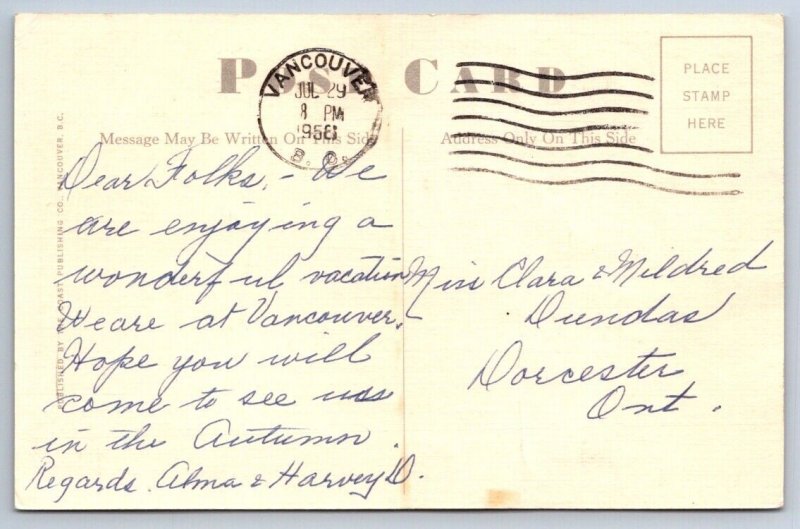 POST CARD
PLACE
STAMP
HERE
VANCOUVER
JUL 29
8 PM
B. C.
Message May Be Written On This Side
Address Only On This Side
PUBLISHED BY THE COAST PUBLISHING CO., VANCOUVER, B.C.
Dear Folks, - We
are enjoying a
wonderful vacation
We are at Vancouver.
Hope you will
come to see us
in the Autumn.
Regards. Alma & Harvey D.
Miss Clara & Mildred
Dundas
Dorcester
Ont.